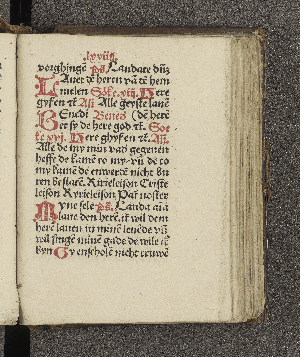 lxviij.
vorghinge Ps. Laudate dnz
Lauet de heren va de hem
melen Soke. xij. Here
gyf en rc. An Alle geyste lane
Benedi (de here
Ber sy de here god rc. Soe
ke. xvj. Here ghyf en rc. An.
Alle de my min vad gegeuen
hefft de kame to my vn de to
my kame de enwerde nicht bu
ten bestate. Kirieleison Criste
leison Kyrieleison Pat noster
Myne sele Ps. Lauda aia
laue den here. ik wil dem
here lauen in mine leuede vn
wil singe mine gade de wile ik
byn Gy enschole nicht truwe